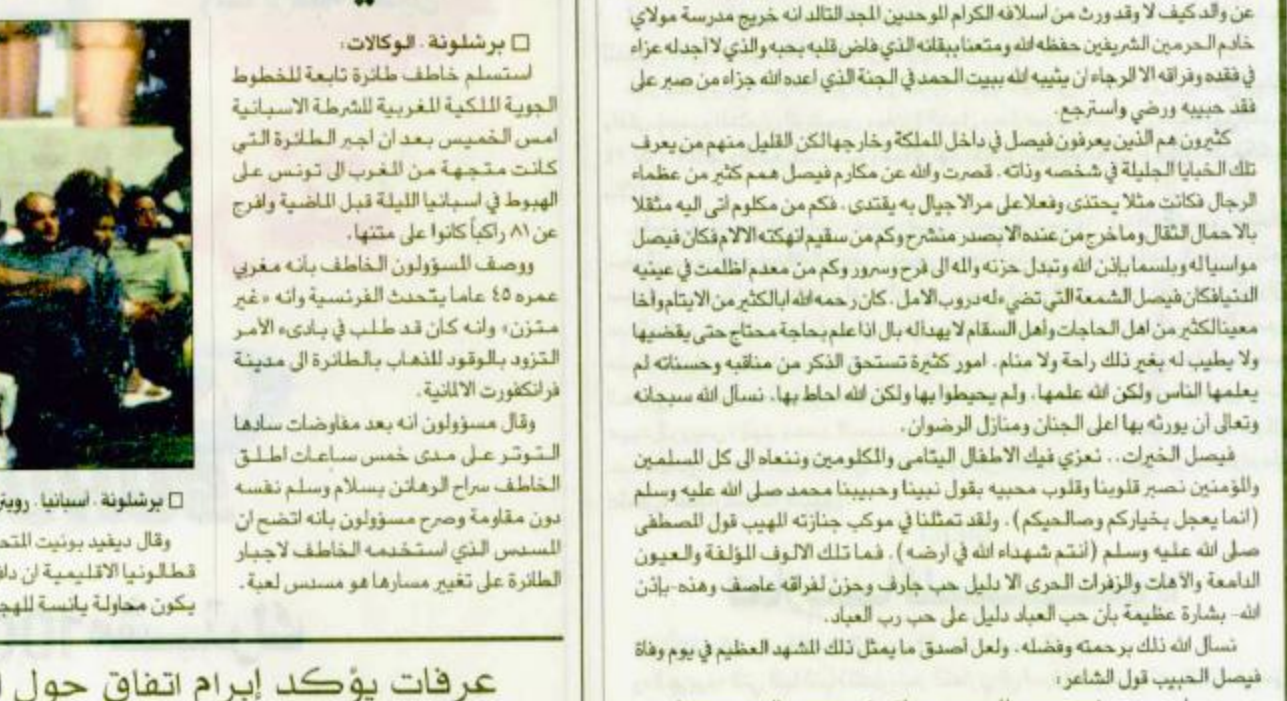 عن والد كيف لا وقد ورث من اسلافه الكرام الموحدين المجد التالد انه خريج مدرسة مولاي
خادم الحرمين الشريفين حفظه الله ومتعنا ببقائه الذي فاض قلبه بحبه والذي لا اجد له عزاء
في فقده وفراقه الا الرجاء ان يثيبه الله ببيت الحمد في الجنة الذي اعده الله جزاء من صبر على
فقد حبيبه ورضي واسترجع.
كثيرون هم الذين يعرفون فيصل في داخل المملكة وخارجها لكن القليل منهم من يعرف
تلك الخبايا الجليلة في شخصه وذاته. قصرت والله عن مكارم فيصل همم كثير من عظماء
الرجال فكانت مثلا يحتذى وفعلا على مر الاجيال به يقتدى. فكم من مكلوم اتى اليه مثقلا
بالاحمال الثقال وما خرج من عنده الا بصدر منشرح وكم من سقيم انهكته الالام فكان فيصل
مواسيا له وبلسما بإذن الله وتبدل حزنه والمه الى فرح وسرور وكم من معدم اظلمت في عينيه
الدنيا فكان فيصل الشمعة التي تضيء له دروب الامل. كان رحمه الله ابا لكثير من الايتام وأخا
معينا لكثير من اهل الحاجات وأهل السقام لا يهدأ له بال اذا علم بحاجة محتاج حتى يقضيها
ولا يطيب له بغير ذلك راحة ولا منام. امور كثيرة تستحق الذكر من مناقبه وحسناته لم
يعلمها الناس ولكن الله علمها. ولم يحيطوا بها ولكن الله احاط بها. نسأل الله سبحانه
وتعالى أن يورثه بها اعلى الجنان ومنازل الرضوان.
فيصل الخيرات.. نعزي فيك الاطفال اليتامى والمكلومين وننعاه الى كل المسلمين
والمؤمنين نصبر قلوبنا وقلوب محبيه بقول نبينا وحبيبنا محمد صلى الله عليه وسلم
(انما يعجل بخياركم وصالحيكم). ولقد تمثلنا في موكب جنازته المهيب قول المصطفى
صلى الله عليه وسلم (أنتم شهداء الله في أرضه). فما تلك الالوف المؤلفة والعيون
الدامعة والآهات والزفرات الحرى الا دليل حب جارف وحزن لفراقه عاصف وهذه -بإذن
الله- بشارة عظيمة بأن حب العباد دليل على حب رب العباد.
نسأل الله ذلك برحمته وفضله. ولعل أصدق ما يمثل ذلك المشهد العظيم في يوم وفاة
فيصل الحبيب قول الشاعر:
□ برشلونة - الوكالات:
استسلم خاطف طائرة تابعة للخطوط
الجوية الملكية المغربية للشرطة الاسبانية
امس الخميس بعد ان اجبر الطائرة التي
كانت متجهة من المغرب الى تونس على
الهبوط في اسبانيا الليلة قبل الماضية وافرج
عن ٨١ راكباً كانوا على متنها.
ووصف المسؤولون الخاطف بأنه مغربي
عمره ٤٥ عاما يتحدث الفرنسية وانه «غير
متزن» وانه كان قد طلب في بادىء الأمر
التزود بالوقود للذهاب بالطائرة الى مدينة
فرانكفورت الالمانية.
وقال مسؤولون انه بعد مفاوضات سادها
التوتر على مدى خمس ساعات اطلق
الخاطف سراح الرهائن بسلام وسلم نفسه
دون مقاومة وصرح مسؤولون بانه اتضح ان
المسدس الذي استخدمه الخاطف لاجبار
الطائرة على تغيير مسارها هو مسدس لعبة.
□ برشلونة - أسبانيا - رويتر
وقال ديفيد بونيت المتحد
قطالونيا الاقليمية ان داف
يكون محاولة يائسة للهجر
عرفات يؤكد إبرام اتفاق حول ا